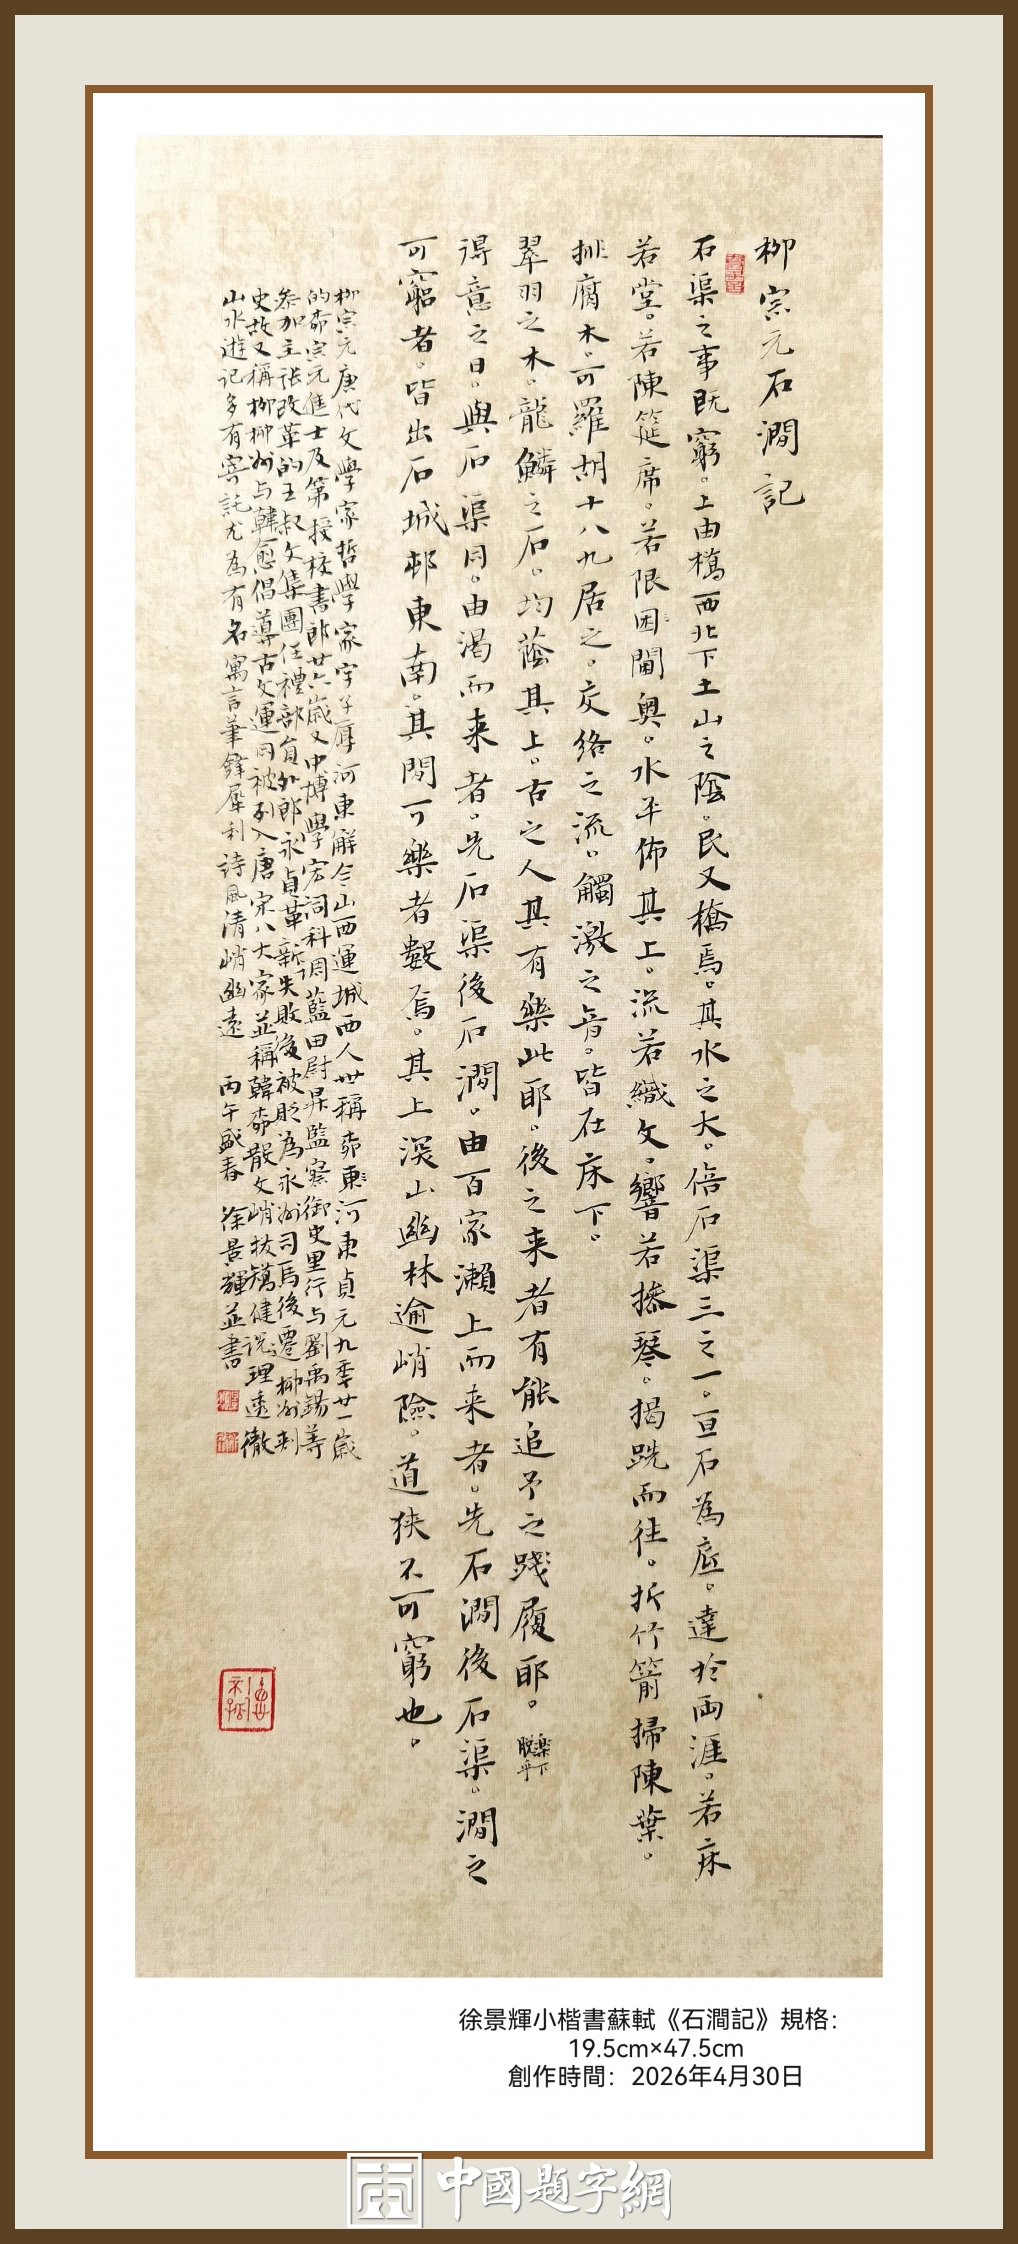 柳宗元石澗記
石渠之事既窮。上由橋西北下土山之陰。民又橋焉。其水之大。倍石渠三之一。亘石為底。達於兩涯。若床
若堂。若陳筵席。若限困閫奧。水平佈其上。流若織文。響若操琴。揭跣而往。折竹箭掃陳葉。
排腐木。可羅胡十八九居之。交絡之流。觸激之音。皆在床下。
翠羽之木。龍鱗之石。均蔭其上。古之人其有樂此耶。後之来者有能追予之踐履耶。
樂下
脫乎
得意之日。與石渠同。由渴而来者。先石渠後石澗。由百家瀨上而来者。先石澗後石渠。澗之
可窮者。皆出石城邨東南。其間可樂者數焉。其上深山幽林逾峭險。道狹不可窮也。
柳宗元唐代文學家哲學家字子厚河東解今山西運城西人世稱柳東河東貞元九年廿一歲
的柳宗元進士及第授校書郎廿六歲又中博學宏詞科調藍田尉昇監察御史里行与劉禹錫等
參加主張改革的王叔文集團任禮部員外郎永貞革新失敗後被貶為永州司馬後遷柳州刺
史故又稱柳柳州与韓愈倡導古文運同被列入唐宋八大家並稱韓柳散文峭拔矯健説理透徹
山水遊記多有寄託尤為有名寓言筆鋒犀利詩風清峭幽遠 丙午盛春 徐景輝並書
徐景輝小楷書蘇軾《石澗記》規格：
19.5cm×47.5cm
創作時間：2026年4月30日
中國題字網